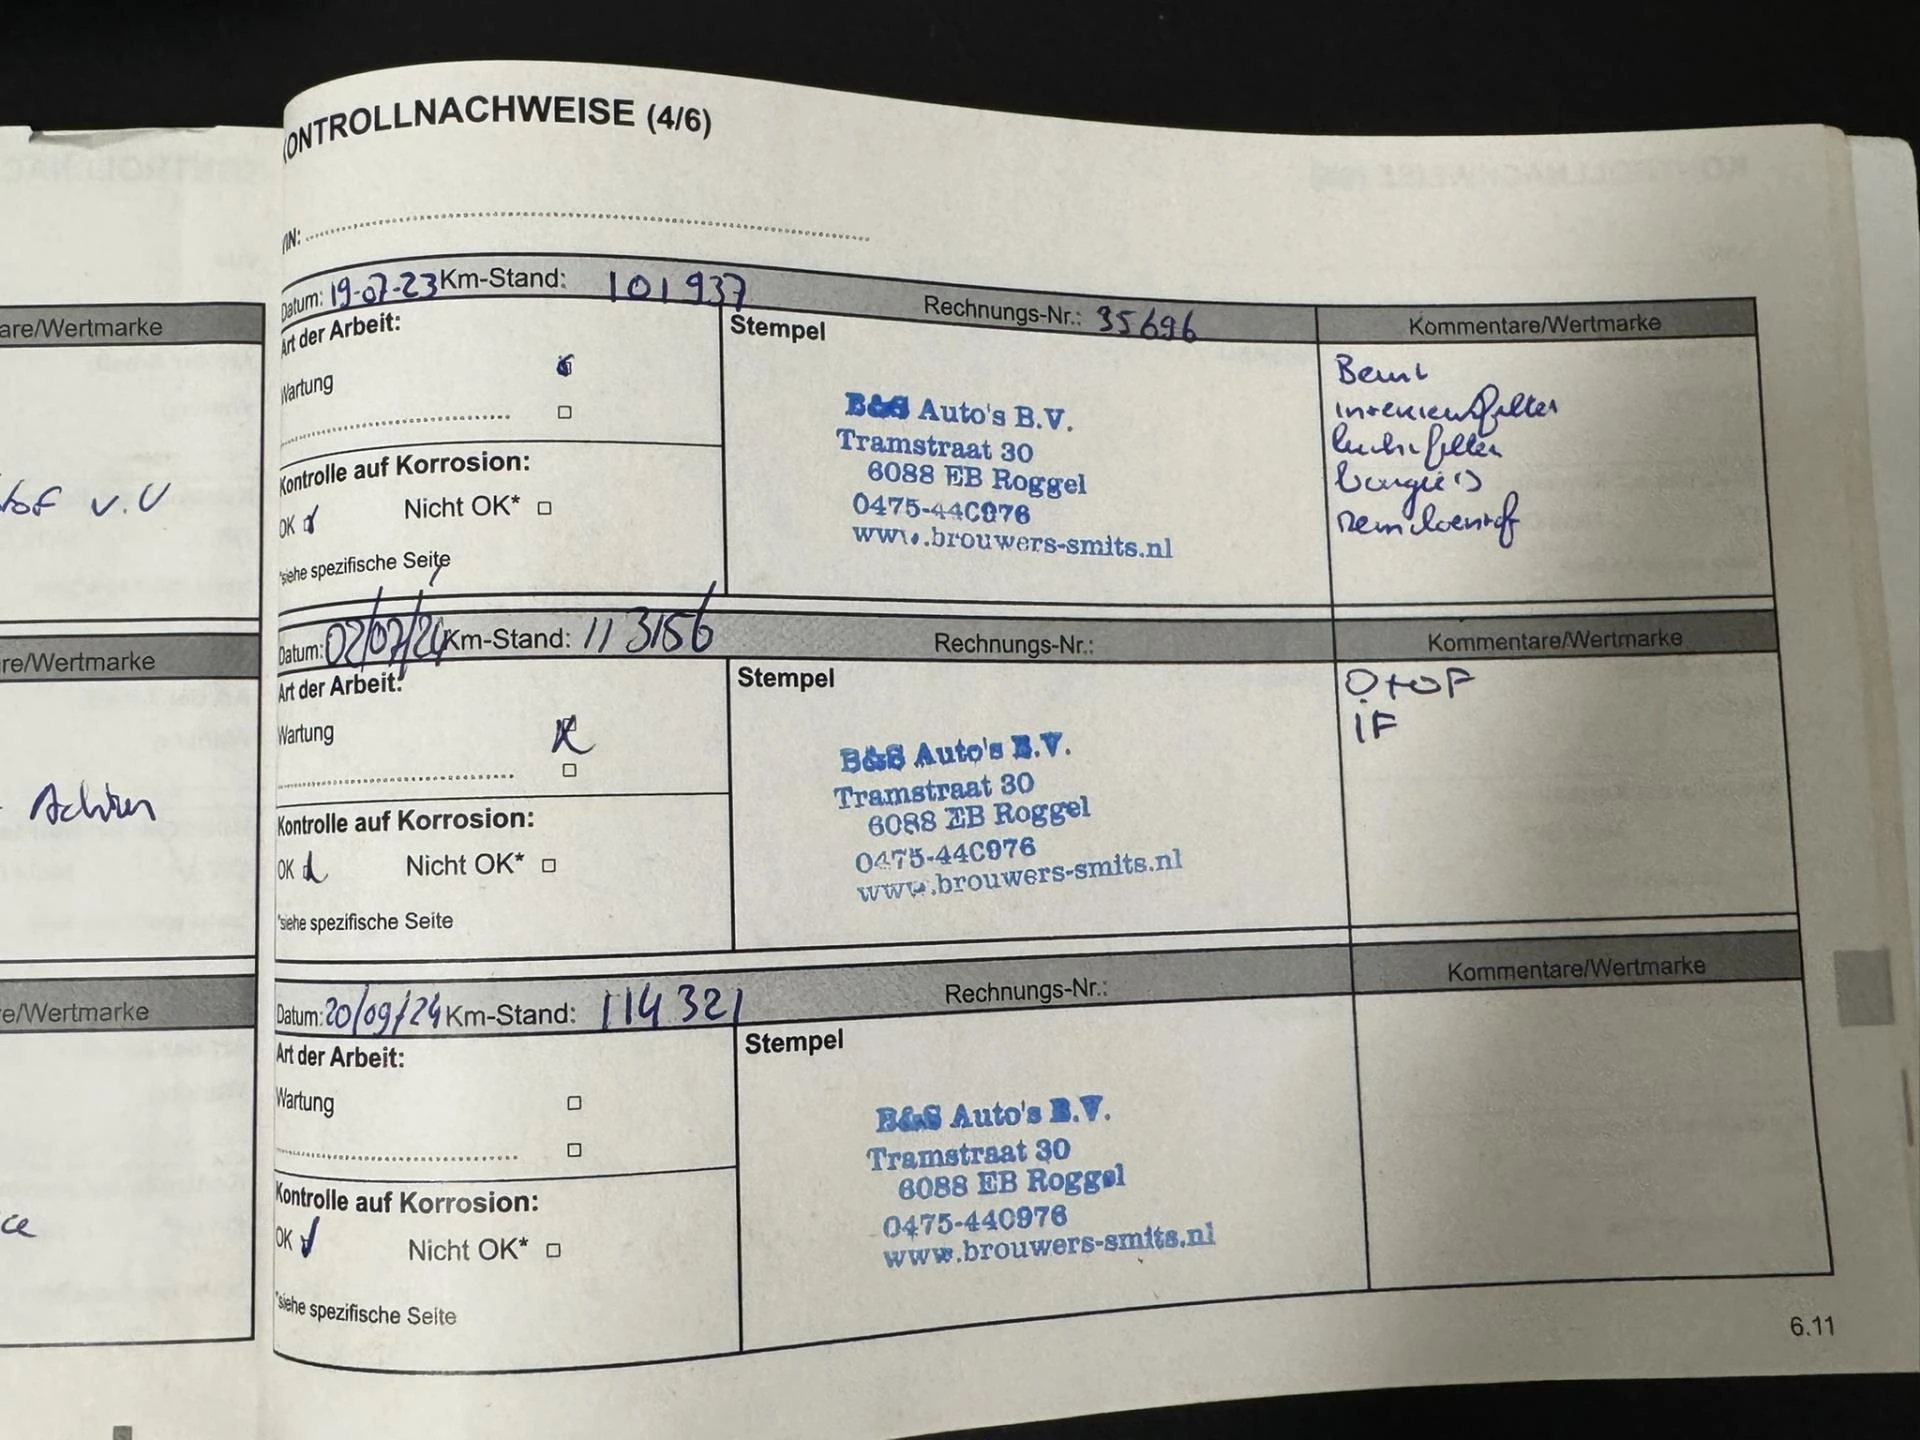 are/Wertmarke
v.U
re/Wertmarke
e/Wertmarke
ce
ONTROLLNACHWEISE (4/6)
IN:
Datum: 19-07-23 Km-Stand: 101937 Rechnungs-Nr.: 35696 Kommentare/Wertmarke
Art der Arbeit:
Wartung
Kontrolle auf Korrosion:
OK Nicht OK*
*siehe spezifische Seite
Stempel
B&S Auto's B.V.
Tramstraat 30
6088 EB Roggel
0475-440976
www.brouwers-smits.nl
Beurt
interieurfilter
luchtfilter
bougie's
remvloeistof
Datum: 02/07/24 Km-Stand: 113156 Rechnungs-Nr.: Kommentare/Wertmarke
Art der Arbeit:
Wartung
Kontrolle auf Korrosion:
OK Nicht OK*
*siehe spezifische Seite
Stempel
B&S Auto's B.V.
Tramstraat 30
6088 EB Roggel
0475-440976
www.brouwers-smits.nl
O+OF
IF
Datum: 20/09/24 Km-Stand: 114321 Rechnungs-Nr.: Kommentare/Wertmarke
Art der Arbeit:
Wartung
Kontrolle auf Korrosion:
OK Nicht OK*
*siehe spezifische Seite
Stempel
B&S Auto's B.V.
Tramstraat 30
6088 EB Roggel
0475-440976
www.brouwers-smits.nl
6.11